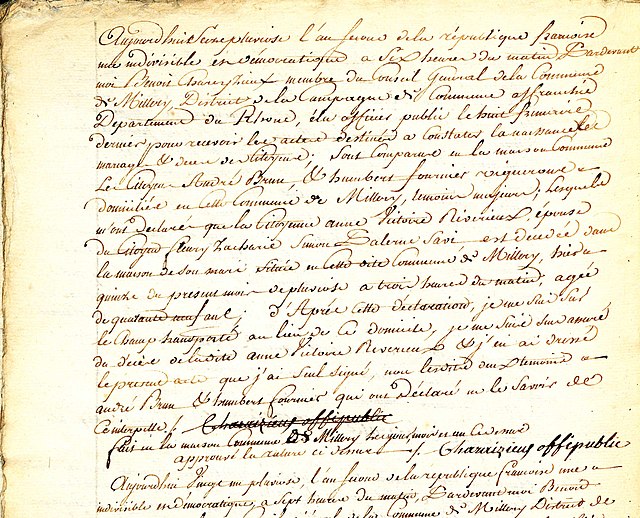 Aujourdhui Seize pluviose l'an second de la république francoise
une indivisible et démocratique a Six heures du matin Pardevant
moi Benoit membre du Conseil Général de la Commune
de Millery, District de la Campagne de Commune affranchie
Département du Rhone, élu officier public le huit frimaire
dernier pour recevoir les actes destinés a Constater la naissance les
mariages & deces des Citoyens: Sont Comparus en la maison Commune
Les Citoyens André Brun, & humbert fournier
domiciliés en cette Commune de Millery, temoins majeurs; lesquels
m'ont déclaré que la Citoyenne anne Victoire Reverieux, épouse
du Citoyen fleury Zacharie Simon Palerne Savi est décédée dans
la maison de son mari Située en Cette dite Commune de Millery, hier
quinze du present mois de pluviose a trois heures du matin, agée
de quarante neuf ans; d'Après Cette déclaration, je me suis sur
le Champ transporté au lieu de Ce domicile, je me suis assuré
du décès de la dite anne Victoire Reverieux & j'en ai dressé
le present acte que j'ai Seul Signé, non lesdits temoins
andré Brun & humbert fournier qui ont Déclaré ne le Savoir de
Ce interpellés
fait en la maison Commune de Millery les jour mois et an Ce dessus
approuvé la rature ci dessus offi public
Aujourdhui Vingt un pluviose, l'an second de la republique francoise une
indivisible et démocratique, a Sept heures du matin, Pardevant moi Benoit
Général de la Commune de Millery District de